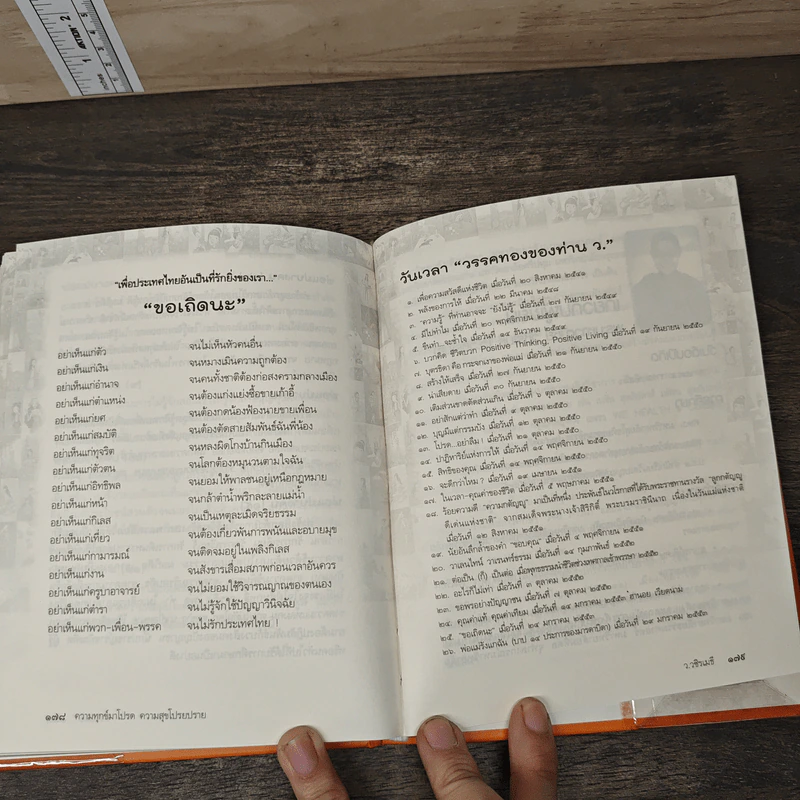 "เพื่อประเทศไทยอันเป็นที่รักยิ่งของเรา..."
"ขอเถิดนะ"
อย่าเห็นแก่ตัว จนไม่เห็นหัวคนอื่น
อย่าเห็นแก่เงิน จนหมางเมินความถูกต้อง
อย่าเห็นแก่อำนาจ จนคนทั้งชาติต้องก่อสงครามกลางเมือง
อย่าเห็นแก่ตำแหน่ง จนต้องแก่งแย่งซื้อขายเก้าอี้
อย่าเห็นแก่ยศ จนต้องกดน้องฟ้องนายขายเพื่อน
อย่าเห็นแก่สมบัติ จนต้องตัดสายสัมพันธ์ฉันพี่น้อง
อย่าเห็นแก่ทุจริต จนหลงผิดโกงบ้านกินเมือง
อย่าเห็นแก่ตัวตน จนโลกต้องหมุนวนตามใจฉัน
อย่าเห็นแก่อิทธิพล จนยอมให้พาลชนอยู่เหนือกฎหมาย
อย่าเห็นแก่หน้า จนกล้าตำน้ำพริกละลายแม่น้ำ
อย่าเห็นแก่กิเลส จนเป็นเหตุละเมิดจริยธรรม
อย่าเห็นแก่เที่ยว จนต้องเกี่ยวพันการพนันและอบายมุข
อย่าเห็นแก่กามารมณ์ จนติดจมอยู่ในเพลิงกิเลส
อย่าเห็นแก่งาน จนสังขารเสื่อมสภาพก่อนเวลาอันควร
อย่าเห็นแก่ครูบาอาจารย์ จนไม่ยอมใช้วิจารณญาณของตนเอง
อย่าเห็นแก่ตำรา จนไม่รู้จักใช้ปัญญาวินิจฉัย
อย่าเห็นแก่พวก-เพื่อน-พรรค จนไม่รักประเทศไทย !
๑๗๘ ความทุกข์มาโปรด ความสุขโปรยปราย
วันเวลา "วรรคทองของท่าน ว."
๑. เพื่อความสวัสดีแห่งชีวิต เมื่อวันที่ ๒๐ สิงหาคม ๒๕๔๑
๒. พลังของการให้ เมื่อวันที่ ๒๒ มีนาคม ๒๕๔๘
๓. "ความรู้" ที่ท่านอาจจะ "ยังไม่รู้" เมื่อวันที่ ๒๗ กันยายน ๒๕๔๙
๔. มีไปทำไม เมื่อวันที่ ๒๐ พฤศจิกายน ๒๕๔๙
๕. ขืนทำ...จะช้ำใจ เมื่อวันที่ ๑๔ ธันวาคม ๒๕๔๙
๖. บวกคิด ชีวิตบวก Positive Thinking, Positive Living เมื่อวันที่ ๑๙ กันยายน ๒๕๕๐
๗. บุตรธิดา คือ กระจกเงาของพ่อแม่ เมื่อวันที่ ๒๑ กันยายน ๒๕๕๐
๘. สร้างให้เสร็จ เมื่อวันที่ ๒๗ กันยายน ๒๕๕๐
๙. น่าเสียดาย เมื่อวันที่ ๓๐ กันยายน ๒๕๕๐
๑๐. เติมส่วนขาดตัดส่วนเกิน เมื่อวันที่ ๖ ตุลาคม ๒๕๕๐
๑๑. อย่าสักแต่ว่าทำ เมื่อวันที่ ๙ ตุลาคม ๒๕๕๐
๑๒. บุญมีแต่กรรมบัง เมื่อวันที่ ๑๒ ตุลาคม ๒๕๕๐
๑๓. โปรด...อย่าลืม ! เมื่อวันที่ ๒๑ ตุลาคม ๒๕๕๐
๑๔. ปาฏิหาริย์แห่งการให้ เมื่อวันที่ ๑๔ พฤศจิกายน ๒๕๕๐
๑๕. สิทธิของคุณ เมื่อวันที่ ๑๔ พฤศจิกายน ๒๕๕๐
๑๖. จะดีกว่าไหม ? เมื่อวันที่ ๑๙ เมษายน ๒๕๕๑
๑๗. ในเวลา-คุณค่าของชีวิต เมื่อวันที่ ๕ พฤษภาคม ๒๕๕๑
๑๘. ร้อยความดี "ความกตัญญู" มาเป็นที่หนึ่ง ประพันธ์ในโรกาสที่ได้รับพระราชทานรางวัล "ลูกกตัญญู
ดีเด่นแห่งชาติ" จากสมเด็จพระนางเจ้าสิริกิติ์ พระบรมราชินีนาถ เนื่องในวันแม่แห่งชาติ
เมื่อวันที่ ๑๒ สิงหาคม ๒๕๕๑
๑๙. นัยอันลึกล้ำของคำ "ขอบคุณ" เมื่อวันที่ ๔ พฤศจิกายน ๒๕๕๑
๒๐. วาเลนไทน์ วาเรนทร์ธรรม เมื่อวันที่ ๑๔ กุมภาพันธ์ ๒๕๕๒
๒๑. ต่อเป็น (ก็) เป็นต่อ เมื่อพุทธธรรมนำชีวิตช่วงเทศกาลเข้าพรรษา ๒๕๕๒
๒๒. อะไรก็ไม่เท่า เมื่อวันที่ ๓ ตุลาคม ๒๕๕๒
๒๓. ขอพรอย่างปัญญาชน เมื่อวันที่ ๗ ตุลาคม ๒๕๕๒
๒๔. คุณค่าแท้ คุณค่าเทียม เมื่อวันที่ ๑๔ มกราคม ๒๕๕๓ ฮานอย เวียดนาม
๒๕. "ขอเถิดนะ" เมื่อวันที่ ๒๔ มกราคม ๒๕๕๓
๒๖. พ่อแม่รังแกฉัน (บาป ๑๔ ประการของมารดาบิดา) เมื่อวันที่ ๒๙ มกราคม ๒๕๕๓
ว.วชิรเมธี ๑๗๙